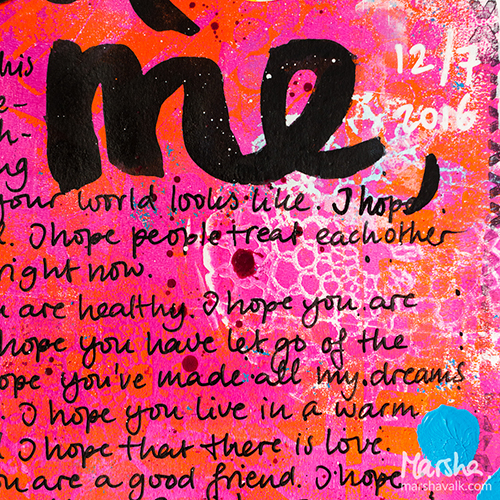 me,
12/7
2016
his
e-
h-
ng
your world looks like. I hope
. I hope people treat eachother
right now.
u are healthy. I hope you are
hope you have let go of the
ope you've made all my dreams
. I hope you live in a warm
I hope that there is love.
ou are a good friend. I hope
Marsha
marshavalk.com